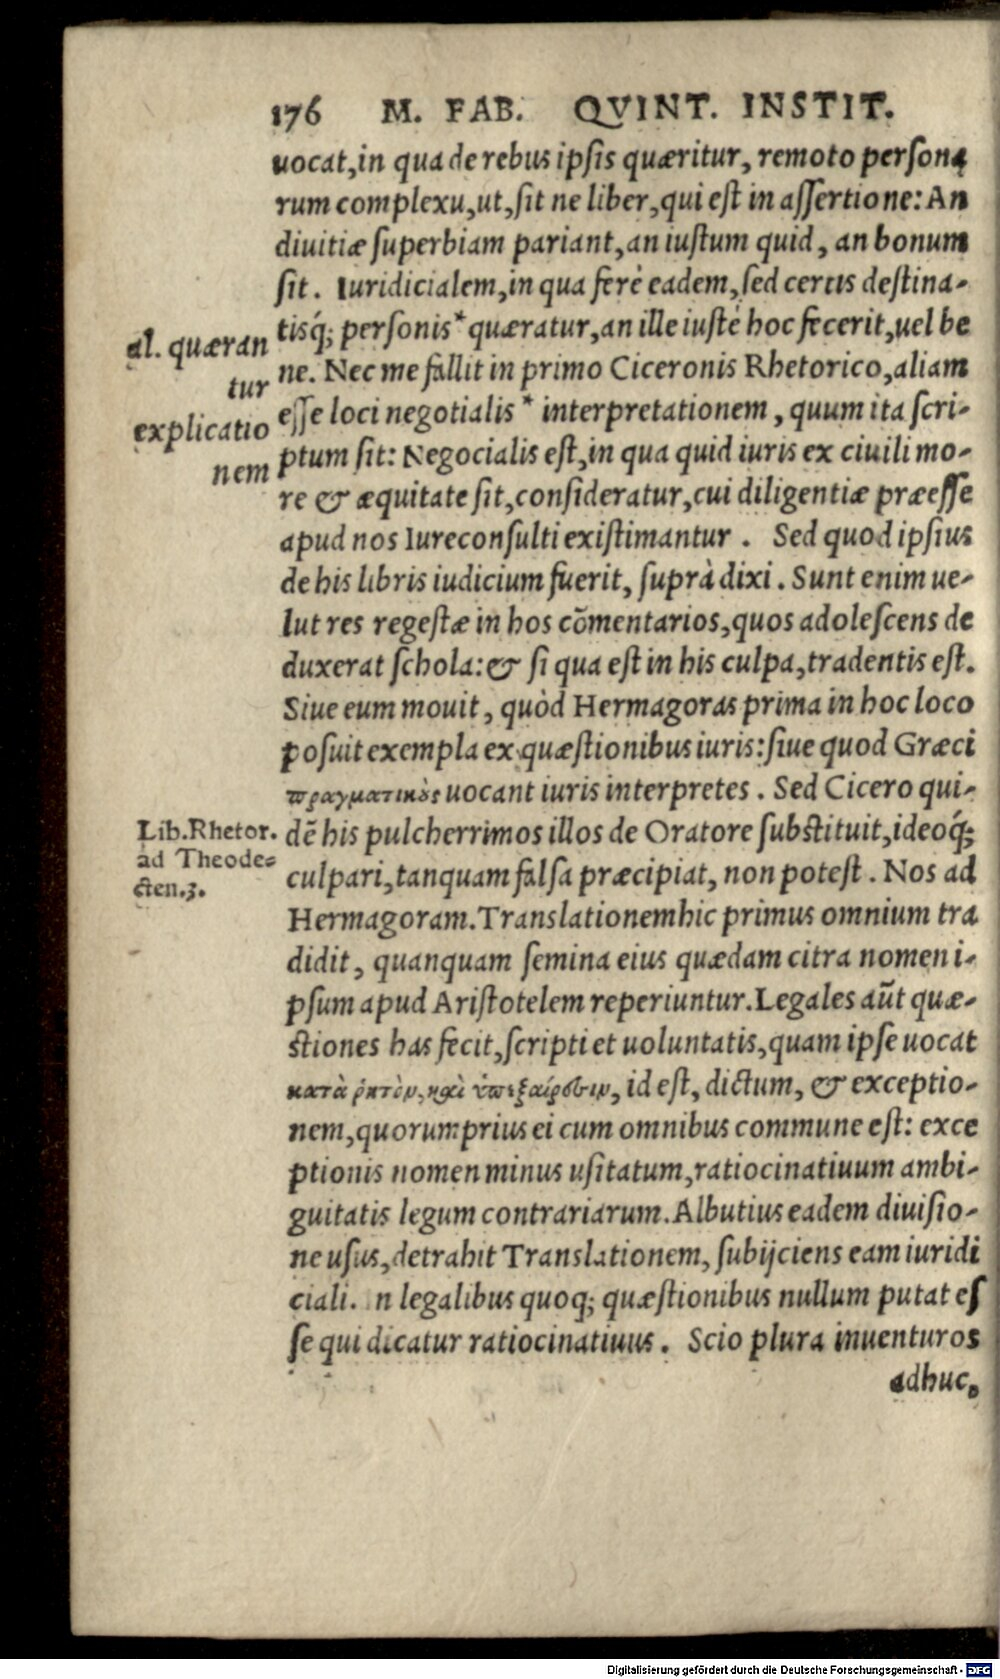 176 M. FAB. QVINT. INSTIT.
uocat, in qua de rebus ipsis quæritur, remoto personą
rum complexu, ut, sit ne liber, qui est in assertione: An
diuitiæ superbiam pariant, an iustum quid, an bonum
sit. Iuridicialem, in qua ferè eadem, sed certis destina-
tisq́; personis* quæratur, an ille iustè hoc fecerit, uel be
ne. Nec me fallit in primo Ciceronis Rhetorico, aliam
esse loci negotialis * interpretationem, quum ita scri-
ptum sit: Negocialis est, in qua quid iuris ex ciuili mo-
re & æquitate sit, consideratur, cui diligentiæ præesse
apud nos Iureconsulti existimantur. Sed quod ipsius
de his libris iudicium fuerit, suprà dixi. Sunt enim ue-
lut res regestæ in hos cōmentarios, quos adolescens de
duxerat schola: & si qua est in his culpa, tradentis est.
Siue eum mouit, quòd Hermagoras prima in hoc loco
posuit exempla ex quæstionibus iuris: siue quod Græci
πραγματικὸς uocant iuris interpretes. Sed Cicero qui-
dē his pulcherrimos illos de Oratore substituit, ideoq́;
culpari, tanquam falsa præcipiat, non potest. Nos ad
Hermagoram. Translationem hic primus omnium tra
didit, quanquam semina eius quædam citra nomen i-
psum apud Aristotelem reperiuntur. Legales aūt quæ-
stiones has fecit, scripti et uoluntatis, quam ipse uocat
κατὰ ῥητὸν, καὶ ὑπεξαίρεσιν, id est, dictum, & exceptio-
nem, quorum prius ei cum omnibus commune est: exce
ptionis nomen minus usitatum, ratiocinatiuum ambi-
guitatis legum contrariarum. Albutius eadem diuisio-
ne usus, detrahit Translationem, subijciens eam iuridi
ciali. n legalibus quoq; quæstionibus nullum putat es
se qui dicatur ratiocinatiuus. Scio plura inuenturos
adhuc,
al. quæran
tur
explicatio
nem
Lib. Rhetor.
ad Theode-
cten.3.
Digitalisierung gefördert durch die Deutsche Forschungsgemeinschaft - DFG